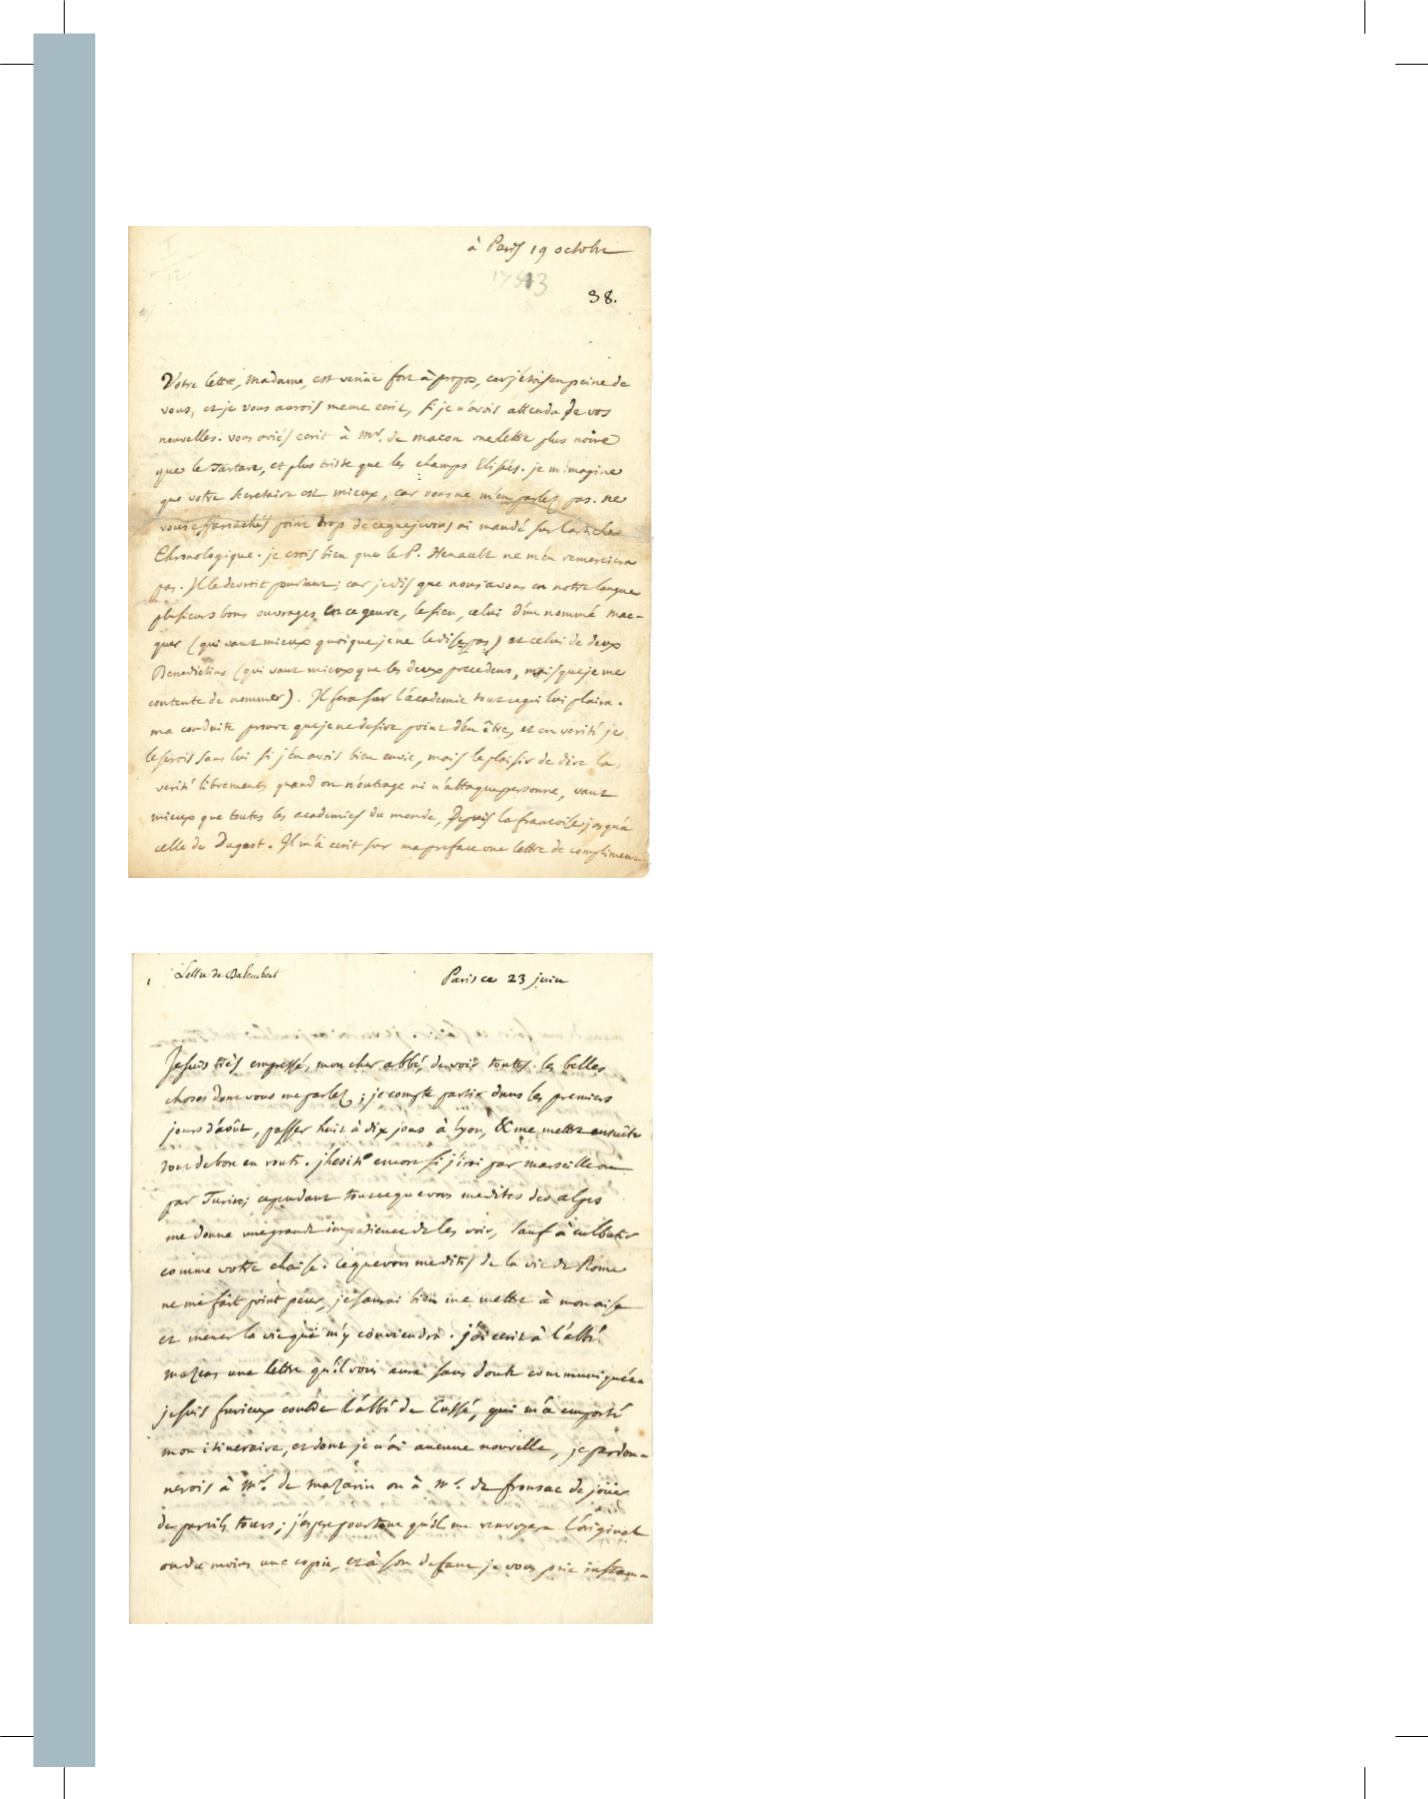 à Paris 19 octobre
1753
38.
Votre lettre, madame, est venüe fort à propos, car j'étois en peine de
vous, et je vous aurois meme ecrit, si je n'avois attendu de vos
nouvelles. vous aviés ecrit à Mr. de macon une lettre plus noire
que le Tartare, et plus triste que les champs Elisées. je m'imagine
que votre secretaire est mieux, car vous ne m'en parlez pas. ne
vous effarouchés point trop de ce que je vous ai mandé sur l'article
Chronologique. je crois bien que le P. Henault ne m'en remerciera
pas. Il le devroit pourtant; car je dis que nous avons en notre langue
plusieurs bons ouvrages en ce genre, le sien, celui d'un nommé Mac-
quer (qui vaut mieux quoique je ne le dise pas) et celui de deux
Benedictins (qui vaut mieux que les deux precedens, mais que je me
contente de nommer). Il fera sur l'academie tout ce qui lui plaira.
ma conduite prouve que je ne desire point d'en être, et en verité je
le serois sans lui si j'en avois bien envie, mais le plaisir de dire la
verité librement quand on n'outrage ni n'attaque personne, vaut
mieux que toutes les academies du monde, Depuis la francoise jusqu'à
celle de Dugast. Il m'a ecrit sur ma preface une lettre de complimens
1 Lettre de Dalembert
Paris ce 23 juin
Je suis très empressé, mon cher abbé, de voir toutes les belles
choses dont vous me parlez; je compte partir dans les premiers
jours d'août, passer huit à dix jours à Lyon, & me mettre ensuite
tout de bon en route. j'hesite encore si j'irai par marseille ou
par Turin; cependant tout ce que vous me dites des alpes
me donne une grande impatience de les voir, sauf à culbuter
comme votre chaise. ce que vous me dites de la vie de Rome
ne me fait point peur, je saurai bien me mettre à mon aise
et mener la vie qui m'y conviendra. j'ai ecrit à l'abbé
une lettre qu'il vous aura sans doute communiquée.
je suis furieux contre l'abbé de qui m'a emporté
mon itineraire, et dont je n'ai aucune nouvelle, je pardon-
nerois à Mr. de Mazarin ou à Mr. de fronsac de joüer
de pareils tours; j'espere pourtant qu'il me renvoyera l'original
ou du moins une copie, et à son defaut je vous prie instam-